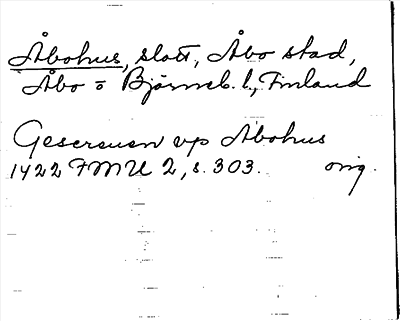 Åbohus, slott, Åbo stad,
Åbo o Björneb. l., Finland
Gesersuen vp Abohus
1422 FMU 2, s. 303. orig.